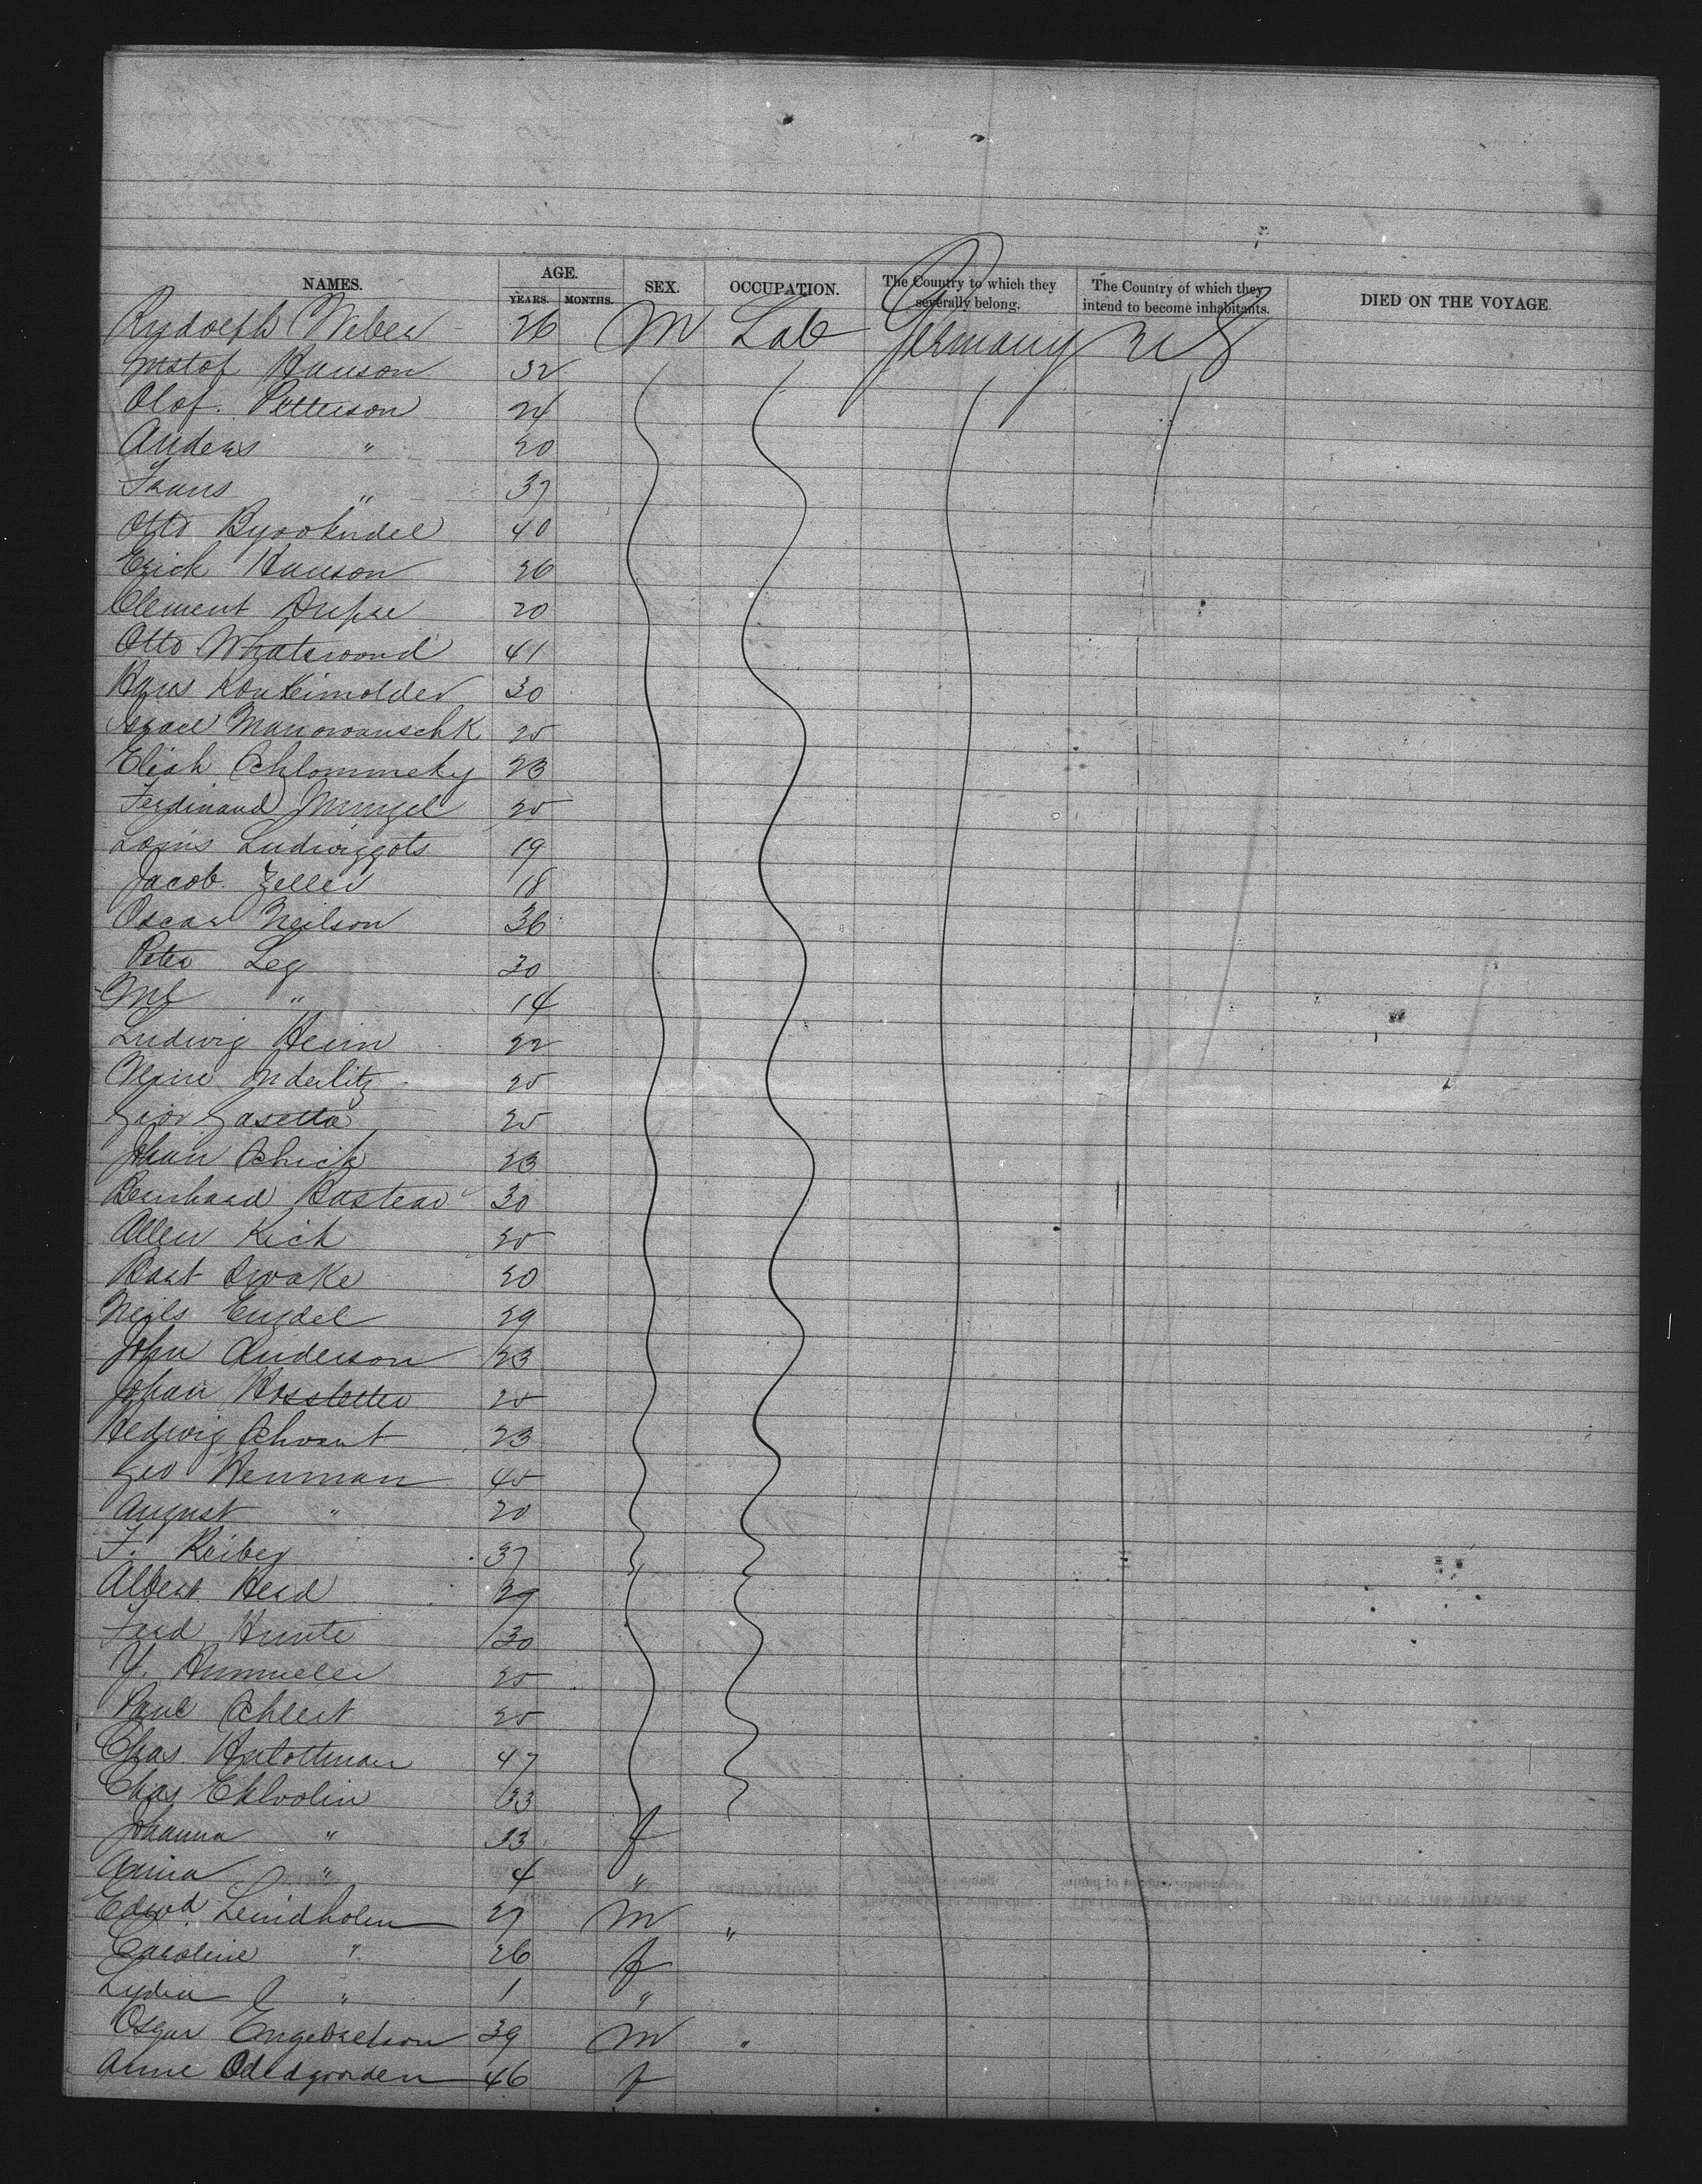 NAMES. AGE. YEARS. MONTHS. SEX. OCCUPATION. The Country to which they severally belong. The Country of which they intend to become inhabitants. DIED ON THE VOYAGE.
Rudolph Weber 26 M Lab Germany U S
Gustof Hanson 32
Olof. Petterson 24
Anders " 20
Frans " 37
Otto 40
Erick Hanson 26
Clement 20
Otto Whatewond 41
Hans 30
Israel Manowanschk 25
Eliah Schlommsky 23
Ferdinand 25
Louis Ludwiggots 19
Jacob. Zeller 18
Oscar Neilson 36
Peter Leg 30
" 14
Ludwig Heim 22
Inderlitz 25
Gasetta 25
Johan Schick 23
Bernhard Bastear 30
Allen Kick 25
Bart Swake 20
Neils Engdel 29
John Anderson 23
Johan Hossletter 25
Hedwig 23
Geo Henman 45
August " 20
F. Reiber 37
Albert Herd 29
Ferd Hunte 30
Y. Hummeller 25
Paul Schlert 25
Chas. Hulottman 47
Chas Ekloolin 33
Johanna " 33 f
Anna " 4 "
Edwd Leindholm 27 M "
Caroline " 26 f
Lydia C " 1 "
Osgar Engebretson 39 M "
Anne Odedgorden 46 f